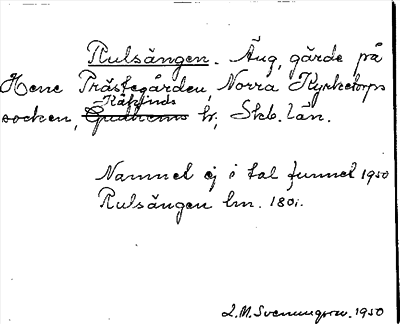 Rulsängen. Äng, gärde på
Hene Prästegården, Norra Kyrketorps
-Kåkinds
socken, Gudhems hr, Skb. län.
Namnet ej i tal funnet 1950
Rulsängen lm. 1801.
L.M. Svenungsson. 1950